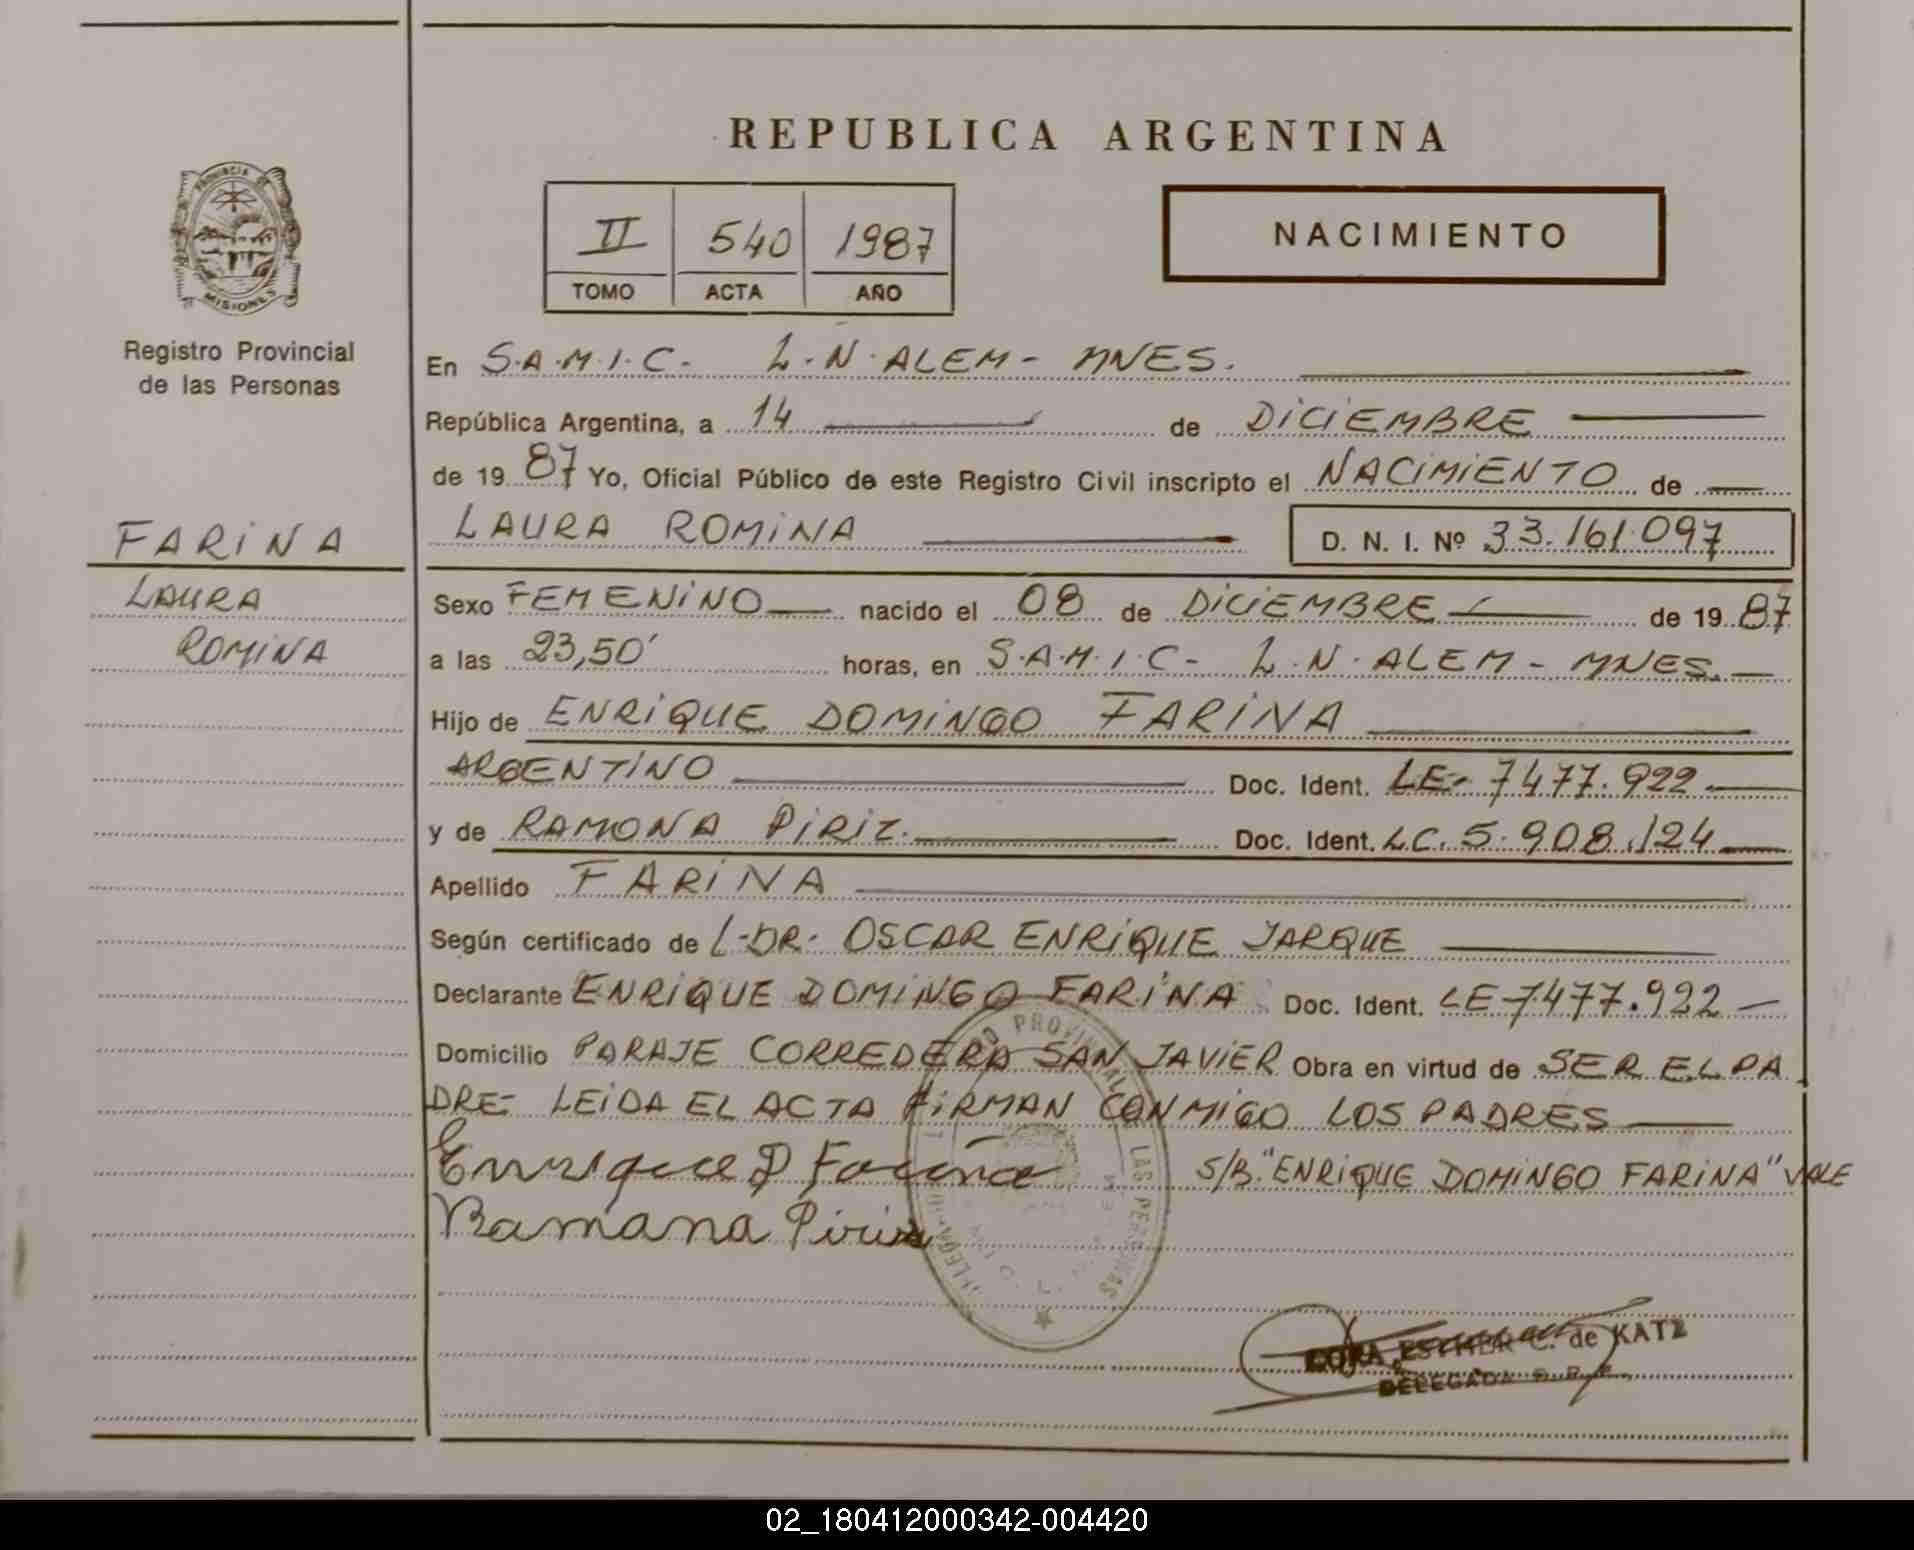 REPUBLICA ARGENTINA
PROVINCIA DE
MISIONES
Registro Provincial
de las Personas
II 540 1987
TOMO ACTA AÑO
NACIMIENTO
En S.A.M.I.C. L.N.ALEM- MNES.
República Argentina, a 14 de DICIEMBRE
de 19 87 Yo, Oficial Público de este Registro Civil inscripto el NACIMIENTO de
LAURA ROMINA D. N. I. Nº 33.161.097
FARINA
LAURA
ROMINA
Sexo FEMENINO nacido el 08 de DICIEMBRE de 19 87
a las 23,50' horas, en S.A.M.I.C- L.N.ALEM- MNES.
Hijo de ENRIQUE DOMINGO FARINA
ARGENTINO Doc. Ident. LE- 7477.922
y de RAMONA PIRIZ. Doc. Ident. LC. 5.908.124
Apellido FARINA
Según certificado de L-DR- OSCAR ENRIQUE JARQUE
Declarante ENRIQUE DOMINGO FARINA Doc. Ident. LE-7477.922
Domicilio PARAJE CORREDERA SAN JAVIER Obra en virtud de SER EL PA
DRE- LEIDA EL ACTA FIRMAN CONMIGO LOS PADRES
Enrique D Farina S/B. "ENRIQUE DOMINGO FARINA" VALE
Ramona Piriz
PROVINCIAL LAS PERSONAS
ESTHER C. de KATZ
DELEGADA
02_180412000342-004420